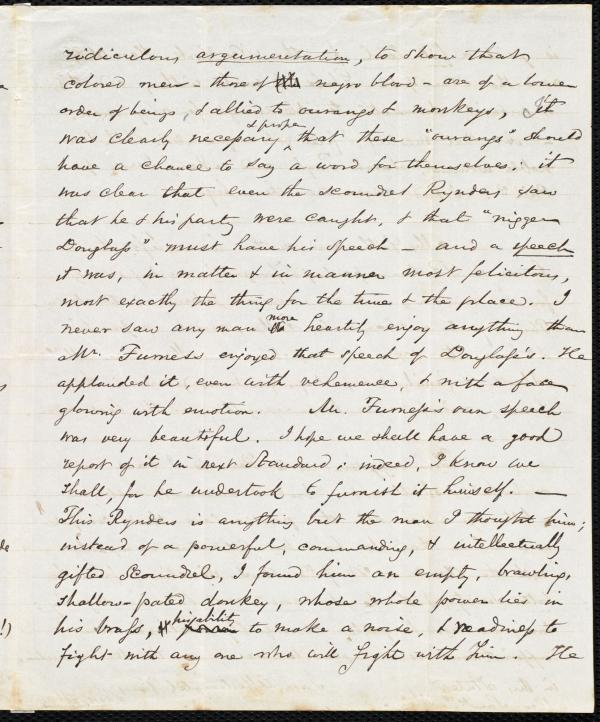 ridiculous argumentation, to show that
colored men - those of negro blood - are of a lower
order of beings, & allied to ourangs & monkeys, It
was clearly necessary & proper that these "ourangs" should
have a chance to say a word for themselves; it
was clear that even the scoundrel Rynders saw
that he & his party were caught, & that "nigger
Douglass" must have his speech — and a speech
it was, in matter & in manner most felicitous,
most exactly the thing for the time & the place. I
never saw any man more heartily enjoy anything than
Mr. Furness enjoyed that speech of Douglass's. He
applauded it, even with vehemence, & with a face
glowing with emotion. Mr. Furness's own speech
was very beautiful. I hope we shall have a good
report of it in next Standard; indeed, I know we
shall, for he undertook to furnish it himself. —
This Rynders is anything but the man I thought him;
instead of a powerful, commanding, & intellectually
gifted Scoundrel, I found him an empty, brawling,
shallow-pated donkey, whose whole power lies in
his brass, his ability to make a noise, & readiness to
fight with any one who will fight with him. He